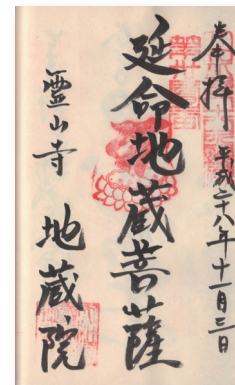 奉拝 平成二十八年十一月三日
延命地蔵菩薩
霊山寺 地蔵院